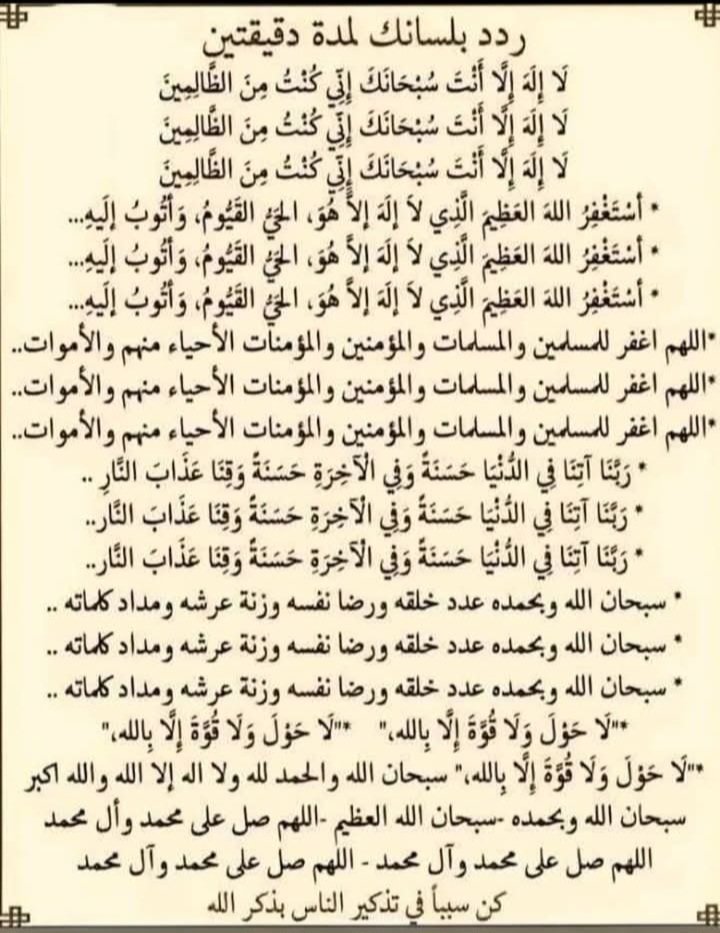 ردد بلسانك لمدة دقيقتين
لَا إِلَهَ إِلَّا أَنْتَ سُبْحَانَكَ إِنِّي كُنْتُ مِنَ الظَّالِمِينَ
لَا إِلَهَ إِلَّا أَنْتَ سُبْحَانَكَ إِنِّي كُنْتُ مِنَ الظَّالِمِينَ
لَا إِلَهَ إِلَّا أَنْتَ سُبْحَانَكَ إِنِّي كُنْتُ مِنَ الظَّالِمِينَ
* أسْتَغْفِرُ اللهَ العَظِيمَ الَّذِي لاَ إلَهَ إلاَّ هُوَ، الحَيُّ القَيُّومُ، وَأتُوبُ إلَيهِ...
* أسْتَغْفِرُ اللهَ العَظِيمَ الَّذِي لاَ إلَهَ إلاَّ هُوَ، الحَيُّ القَيُّومُ، وَأتُوبُ إلَيهِ...
* أسْتَغْفِرُ اللهَ العَظِيمَ الَّذِي لاَ إلَهَ إلاَّ هُوَ، الحَيُّ القَيُّومُ، وَأتُوبُ إلَيهِ...
*اللهم اغفر للمسلمين والمسلمات والمؤمنين والمؤمنات الأحياء منهم والأموات..
*اللهم اغفر للمسلمين والمسلمات والمؤمنين والمؤمنات الأحياء منهم والأموات..
*اللهم اغفر للمسلمين والمسلمات والمؤمنين والمؤمنات الأحياء منهم والأموات..
* رَبَّنَا آتِنَا فِي الدُّنْيَا حَسَنَةً وَفِي الْآخِرَةِ حَسَنَةً وَقِنَا عَذَابَ النَّارِ ..
* رَبَّنَا آتِنَا فِي الدُّنْيَا حَسَنَةً وَفِي الْآخِرَةِ حَسَنَةً وَقِنَا عَذَابَ النَّارِ..
* رَبَّنَا آتِنَا فِي الدُّنْيَا حَسَنَةً وَفِي الْآخِرَةِ حَسَنَةً وَقِنَا عَذَابَ النَّارِ..
* سبحان الله وبحمده عدد خلقه ورضا نفسه وزنة عرشه ومداد كلماته ..
* سبحان الله وبحمده عدد خلقه ورضا نفسه وزنة عرشه ومداد كلماته ..
* سبحان الله وبحمده عدد خلقه ورضا نفسه وزنة عرشه ومداد كلماته ..
*"لَا حَوْلَ وَلَا قُوَّةَ إِلَّا بِالله،" *"لَا حَوْلَ وَلَا قُوَّةَ إِلَّا بِالله،"
*"لَا حَوْلَ وَلَا قُوَّةَ إِلَّا بِالله،" سبحان الله والحمد لله ولا اله إلا الله والله اكبر
سبحان الله وبحمده -سبحان الله العظيم -اللهم صل على محمد وأل محمد
اللهم صل على محمد وآل محمد - اللهم صل على محمد وآل محمد
كن سبباً في تذكير الناس بذكر الله